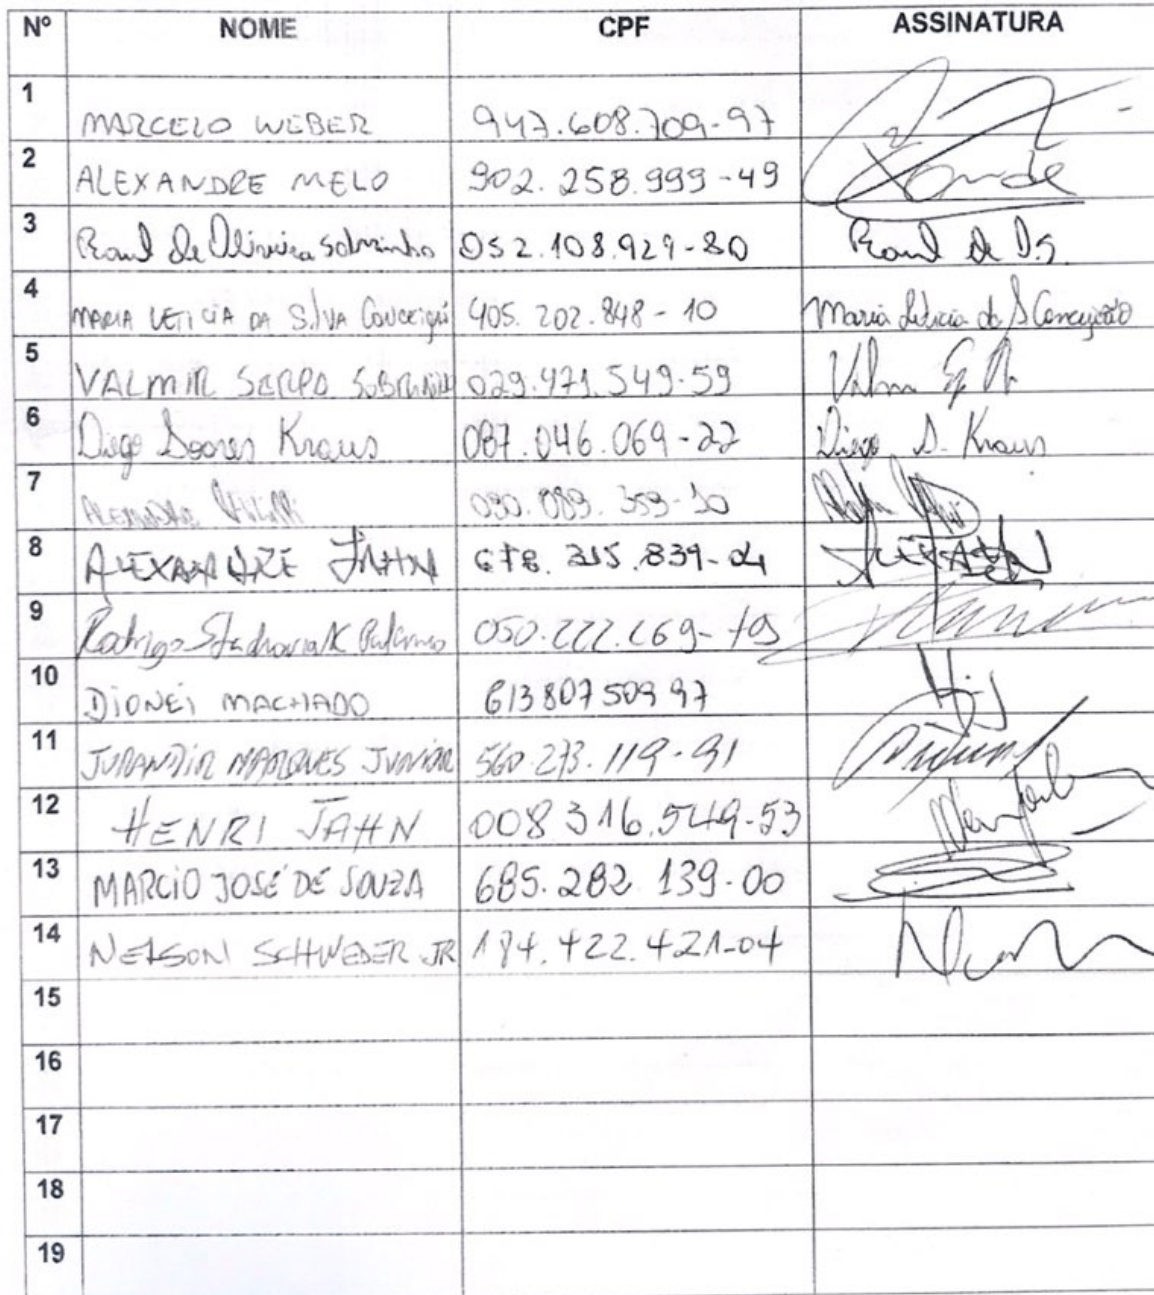 Nº NOME CPF ASSINATURA
1 MARCELO WEBER 947.608.709-97
2 ALEXANDRE MELO 902.258.999-49
3 Raul de Oliveira Sobrinho 052.108.929-80 Raul de O.S.
4 MARIA LETICIA DA SILVA Conceição 405.202.848-10 Maria Leticia da S Conceição
5 VALMIR SERPA SOBRINHO 029.971.549-59
6 Diego Soares Kraus 087.046.069-22 Diego S. Kraus
7 ALEXANDRE 090.089.359-10
8 ALEXANDRE JAHN 678.315.839-04
9 Rodrigo 050.222.269-79
10 DIONEI MACHADO 613807509 97
11 JURANDIR MARQUES JUNIOR 560.273.119-91
12 HENRI JAHN 008 316.549-53
13 MARCIO JOSÉ DE SOUZA 685.282.139-00
14 NELSON SCHWEDER JR 194.422.421-04
15
16
17
18
19